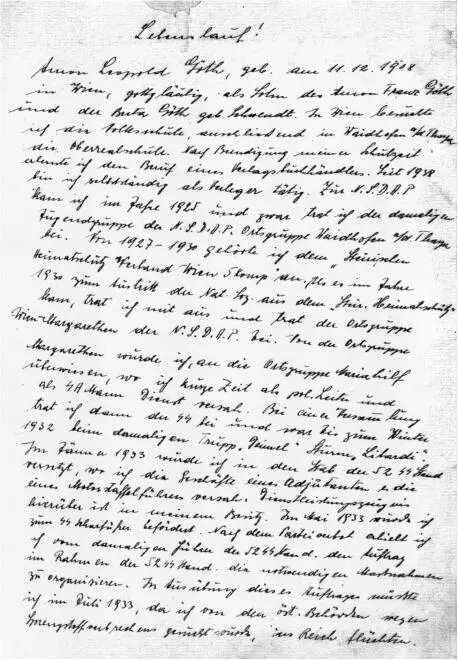 Lebenslauf!
Amon Leopold Göth, geb. am 11.12.1908
in Wien, gottgläubig, als Sohn des Amon Franz Göth
und der Berta Göth geb. Schwendt. In Wien besuchte
ich die Volksschule, anschließend in Waidhofen a/d Thaya
die Oberrealschule. Nach Beendigung meiner Schulzeit
erlernte ich den Beruf eines Verlagsbuchhändlers. Seit 1938
bin ich selbständig als Verleger tätig. Zur N.S.D.A.P
kam ich im Jahre 1925 und zwar trat ich der damaligen
Jugendgruppe der N.S.D.A.P. Ortsgruppe Waidhofen a/d. Thaya
bei. Von 1927-1930 gehörte ich dem „Steirischen
Heimatschutz Verband Wien" an. Als es im Jahre
1930 zum Austritt der Nat. Soz. aus dem „Steir. Heimatschutz"
kam, trat ich mit aus und trat der Ortsgruppe
Wien-Margarethen der N.S.D.A.P. bei. Von der Ortsgruppe
Margarethen wurde ich, an die Ortsgruppe Mariahilf
überwiesen, wo ich kurze Zeit als pol. Leiter und
als SA Mann Dienst versah. Bei einer Versammlung
trat ich dann der SS bei und war bis zum Winter
1932 beim damaligen Trupp „Deimel" Sturm „Libardi".
Im Jänner 1933 wurde ich in den Stab der 52 SS Stand.
versetzt, wo ich die Geschäfte eines Adjutanten u. die
eines Motorstaffelführers versah. Dienstleistungszeugnis
hierüber ist in meinem Besitz. Im Mai 1933 wurde ich
zum SS Scharführer befördert. Nach dem Parteiverbot erhielt ich
vom damaligen Führer der 52 SS Stand. den Auftrag
im Rahmen der 52 SS Stand. die notwendigen Maßnahmen
zu organisieren. In Ausübung dieses Auftrages mußte
ich im Juli 1933, da ich von den öst. Behörden wegen
Sprengstoffverbrechen gesucht wurde, ins Reich flüchten.